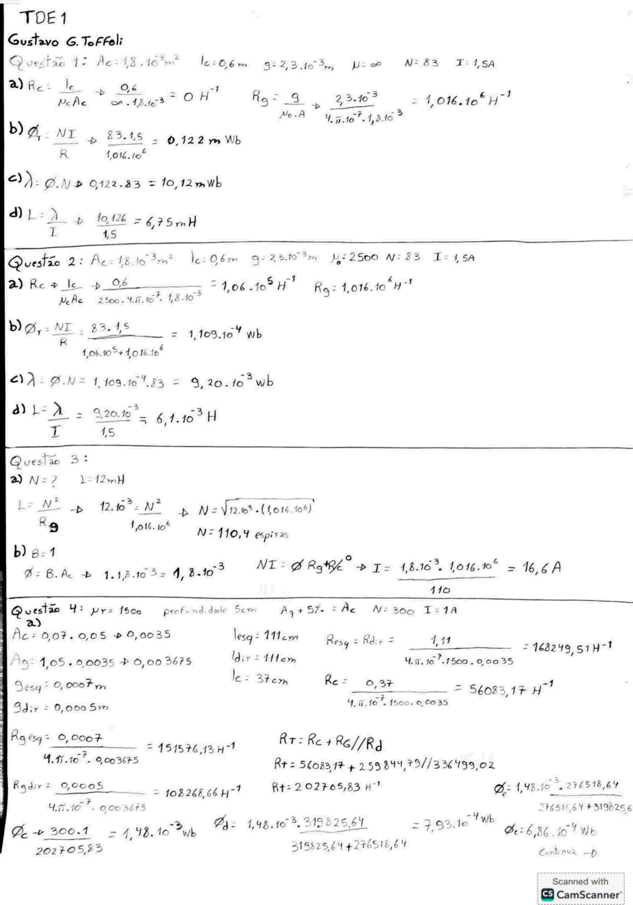 TDE1
Gustavo G. Toffoli
Questão 1: Ac=1,8.10⁻³m² lc=0,6m g=2,3.10⁻³m μ=∞ N=83 I=1,5A
a) Rc= lc/μcAc → 0,6/∞.1,8.10⁻³ = 0 H⁻¹ Rg= g/μ0.A → 2,3.10⁻³/4.π.10⁻⁷.1,8.10⁻³ = 1,016.10⁶ H⁻¹
b) ØT= NI/R → 83.1,5/1,016.10⁶ = 0,122 m Wb
c) λ= Ø.N → 0,122.83 = 10,12mWb
d) L= λ/I → 10,126/1,5 = 6,75mH
Questão 2: Ac=1,8.10⁻³m² lc=0,6m g=2,3.10⁻³m μ0=2500 N=83 I=1,5A
a) Rc → lc/μcAc → 0,6/2500.4.π.10⁻⁷.1,8.10⁻³ = 1,06.10⁵ H⁻¹ Rg=1,016.10⁶ H⁻¹
b) ØT= NI/R = 83.1,5/1,06.10⁵+1,016.10⁶ = 1,109.10⁻⁴ Wb
c) λ= Ø.N = 1,109.10⁻⁴.83 = 9,20.10⁻³ Wb
d) L= λ/I = 9,20.10⁻³/1,5 = 6,1.10⁻³ H
Questão 3:
a) N=? L=12mH
L= N²/Rg → 12.10⁻³= N²/1,016.10⁶ → N=√12.10³.(1,016.10⁶)
N=110,4 espiras
b) B=1
Ø=B.Ac → 1.1,8.10⁻³=1,8.10⁻³ NI= Ø Rg+R/c⁰ → I= 1,8.10⁻³.1,016.10⁶/110 = 16,6A
Questão 4: μr=1500 profundidade 5cm Ag+5% = Ac N=300 I=1A
a)
Ac=0,07.0,05 → 0,0035 lesq=111cm Resq=Rdir= 1,11/4.π.10⁻⁷.1500.0,0035 = 168249,51 H⁻¹
Ag=1,05.0,0035 → 0,003675 ldir=111cm
gesq=0,0007m lc=37cm Rc= 0,37/4.π.10⁻⁷.1500.0,0035 = 56083,17 H⁻¹
gdir=0,0005m
Rgesq= 0,0007/4.π.10⁻⁷.0,003675 = 151576,13 H⁻¹ RT=Rc+RG//Rd
Rt=56083,17+259844,79//336499,02
Rgdir= 0,0005/4.π.10⁻⁷.0,003675 = 108268,66 H⁻¹ Rt=202705,83 H⁻¹ Øe=1,48.10⁻³.276518,64/276518,64+319825,6
Øc → 300.1/202705,83 = 1,48.10⁻³ Wb Ød= 1,48.10⁻³.319825,64/319825,64+276518,64 = 7,93.10⁻⁴ Wb Øe=6,86.10⁻⁴ Wb
Continua →
Scanned with
CS CamScanner